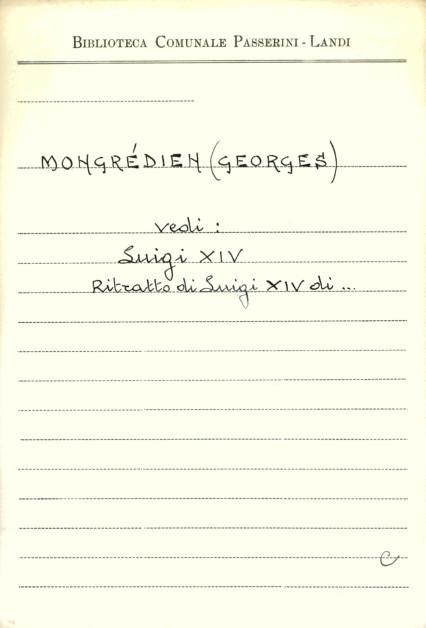 BIBLIOTECA COMUNALE PASSERINI - LANDI
MONGRÉDIEN (GEORGES)
vedi :
Luigi XIV
Ritratto di Luigi XIV di ...
C